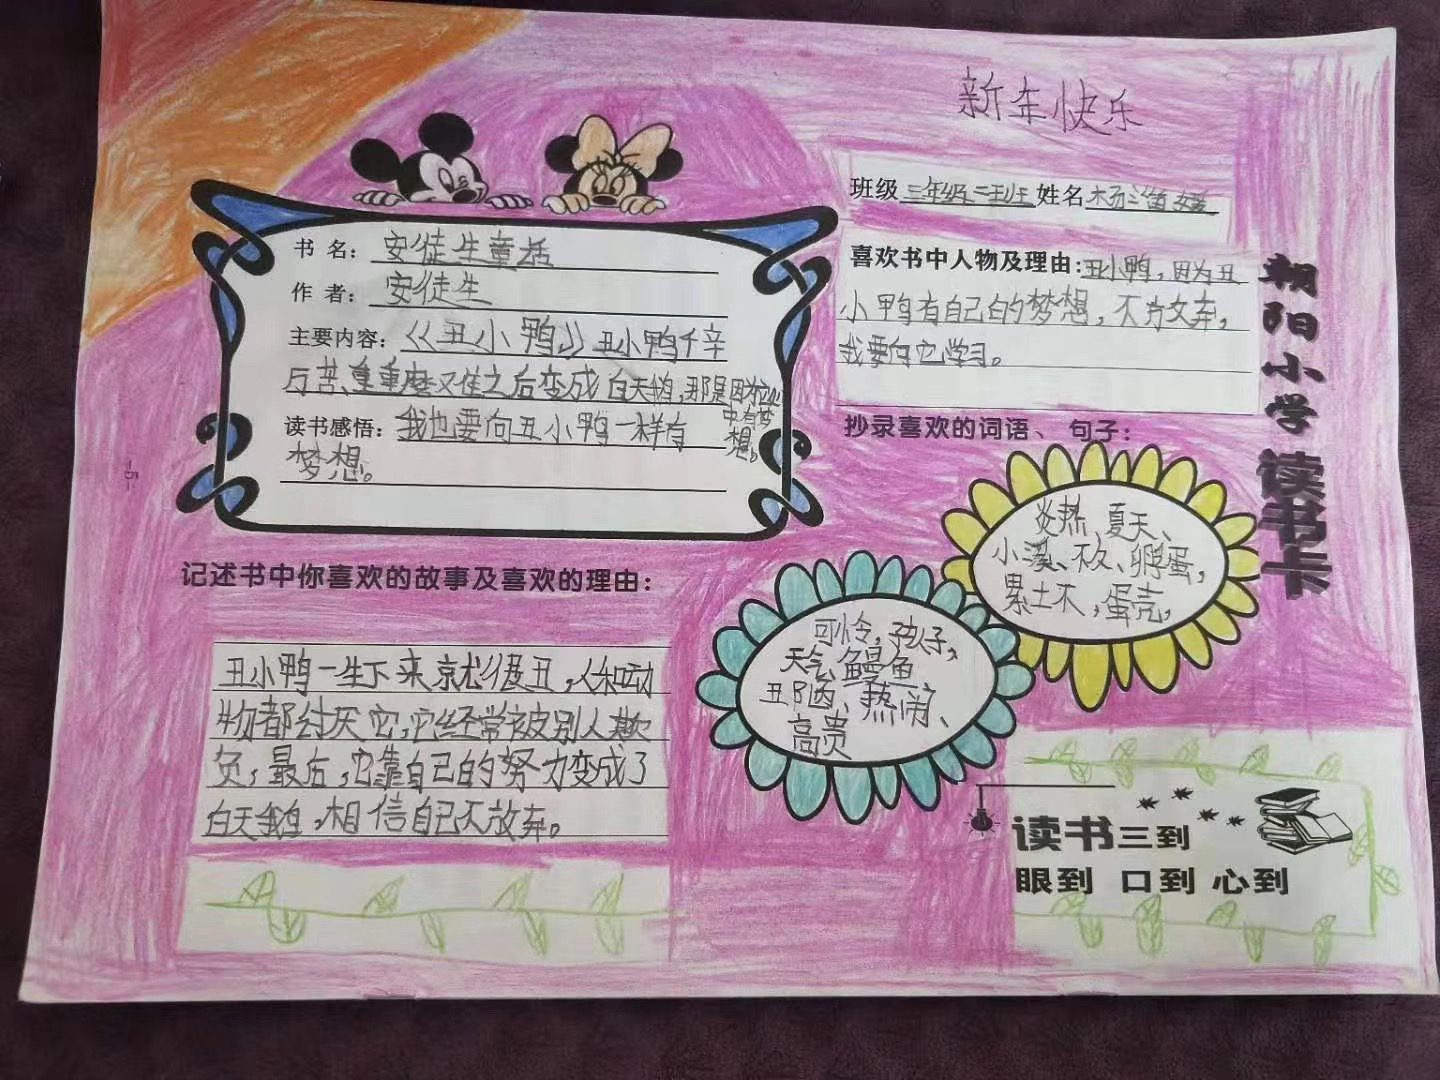 新年快乐
班级 三年级二班 姓名 杨
书 名：安徒生童话
作 者：安徒生
主要内容：《丑小鸭》丑小鸭千辛
万苦、重重磨又佳之后变成白天鹅，那是因为心
中有梦
想。
读书感悟：我也要向丑小鸭一样有
梦想。
喜欢书中人物及理由：丑小鸭，因为丑
小鸭有自己的梦想，不方文弃，
我要向它学习。
抄录喜欢的词语、句子：
炎热、夏天、
小溪、孵蛋，
累土不，蛋壳，
可怜，孩子，
天气、鳗鱼
丑陋、热闹、
高贵
朝阳小学读书卡
记述书中你喜欢的故事及喜欢的理由：
丑小鸭一生下来就很丑，人和动
物都讨厌它，它经常被别人欺
负，最后，它靠自己的努力变成了
白天鹅。相信自己不放弃。
读书三到
眼到 口到 心到